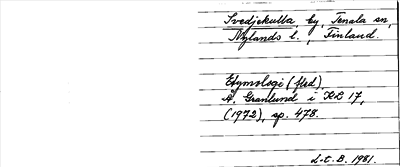 Svedjekulla, by, Tenala sn,
Nylands l., Finland.
Etymologi (fled)
Å. Granlund i KL 17,
(1972), sp. 478.
L-t. B. 1981.